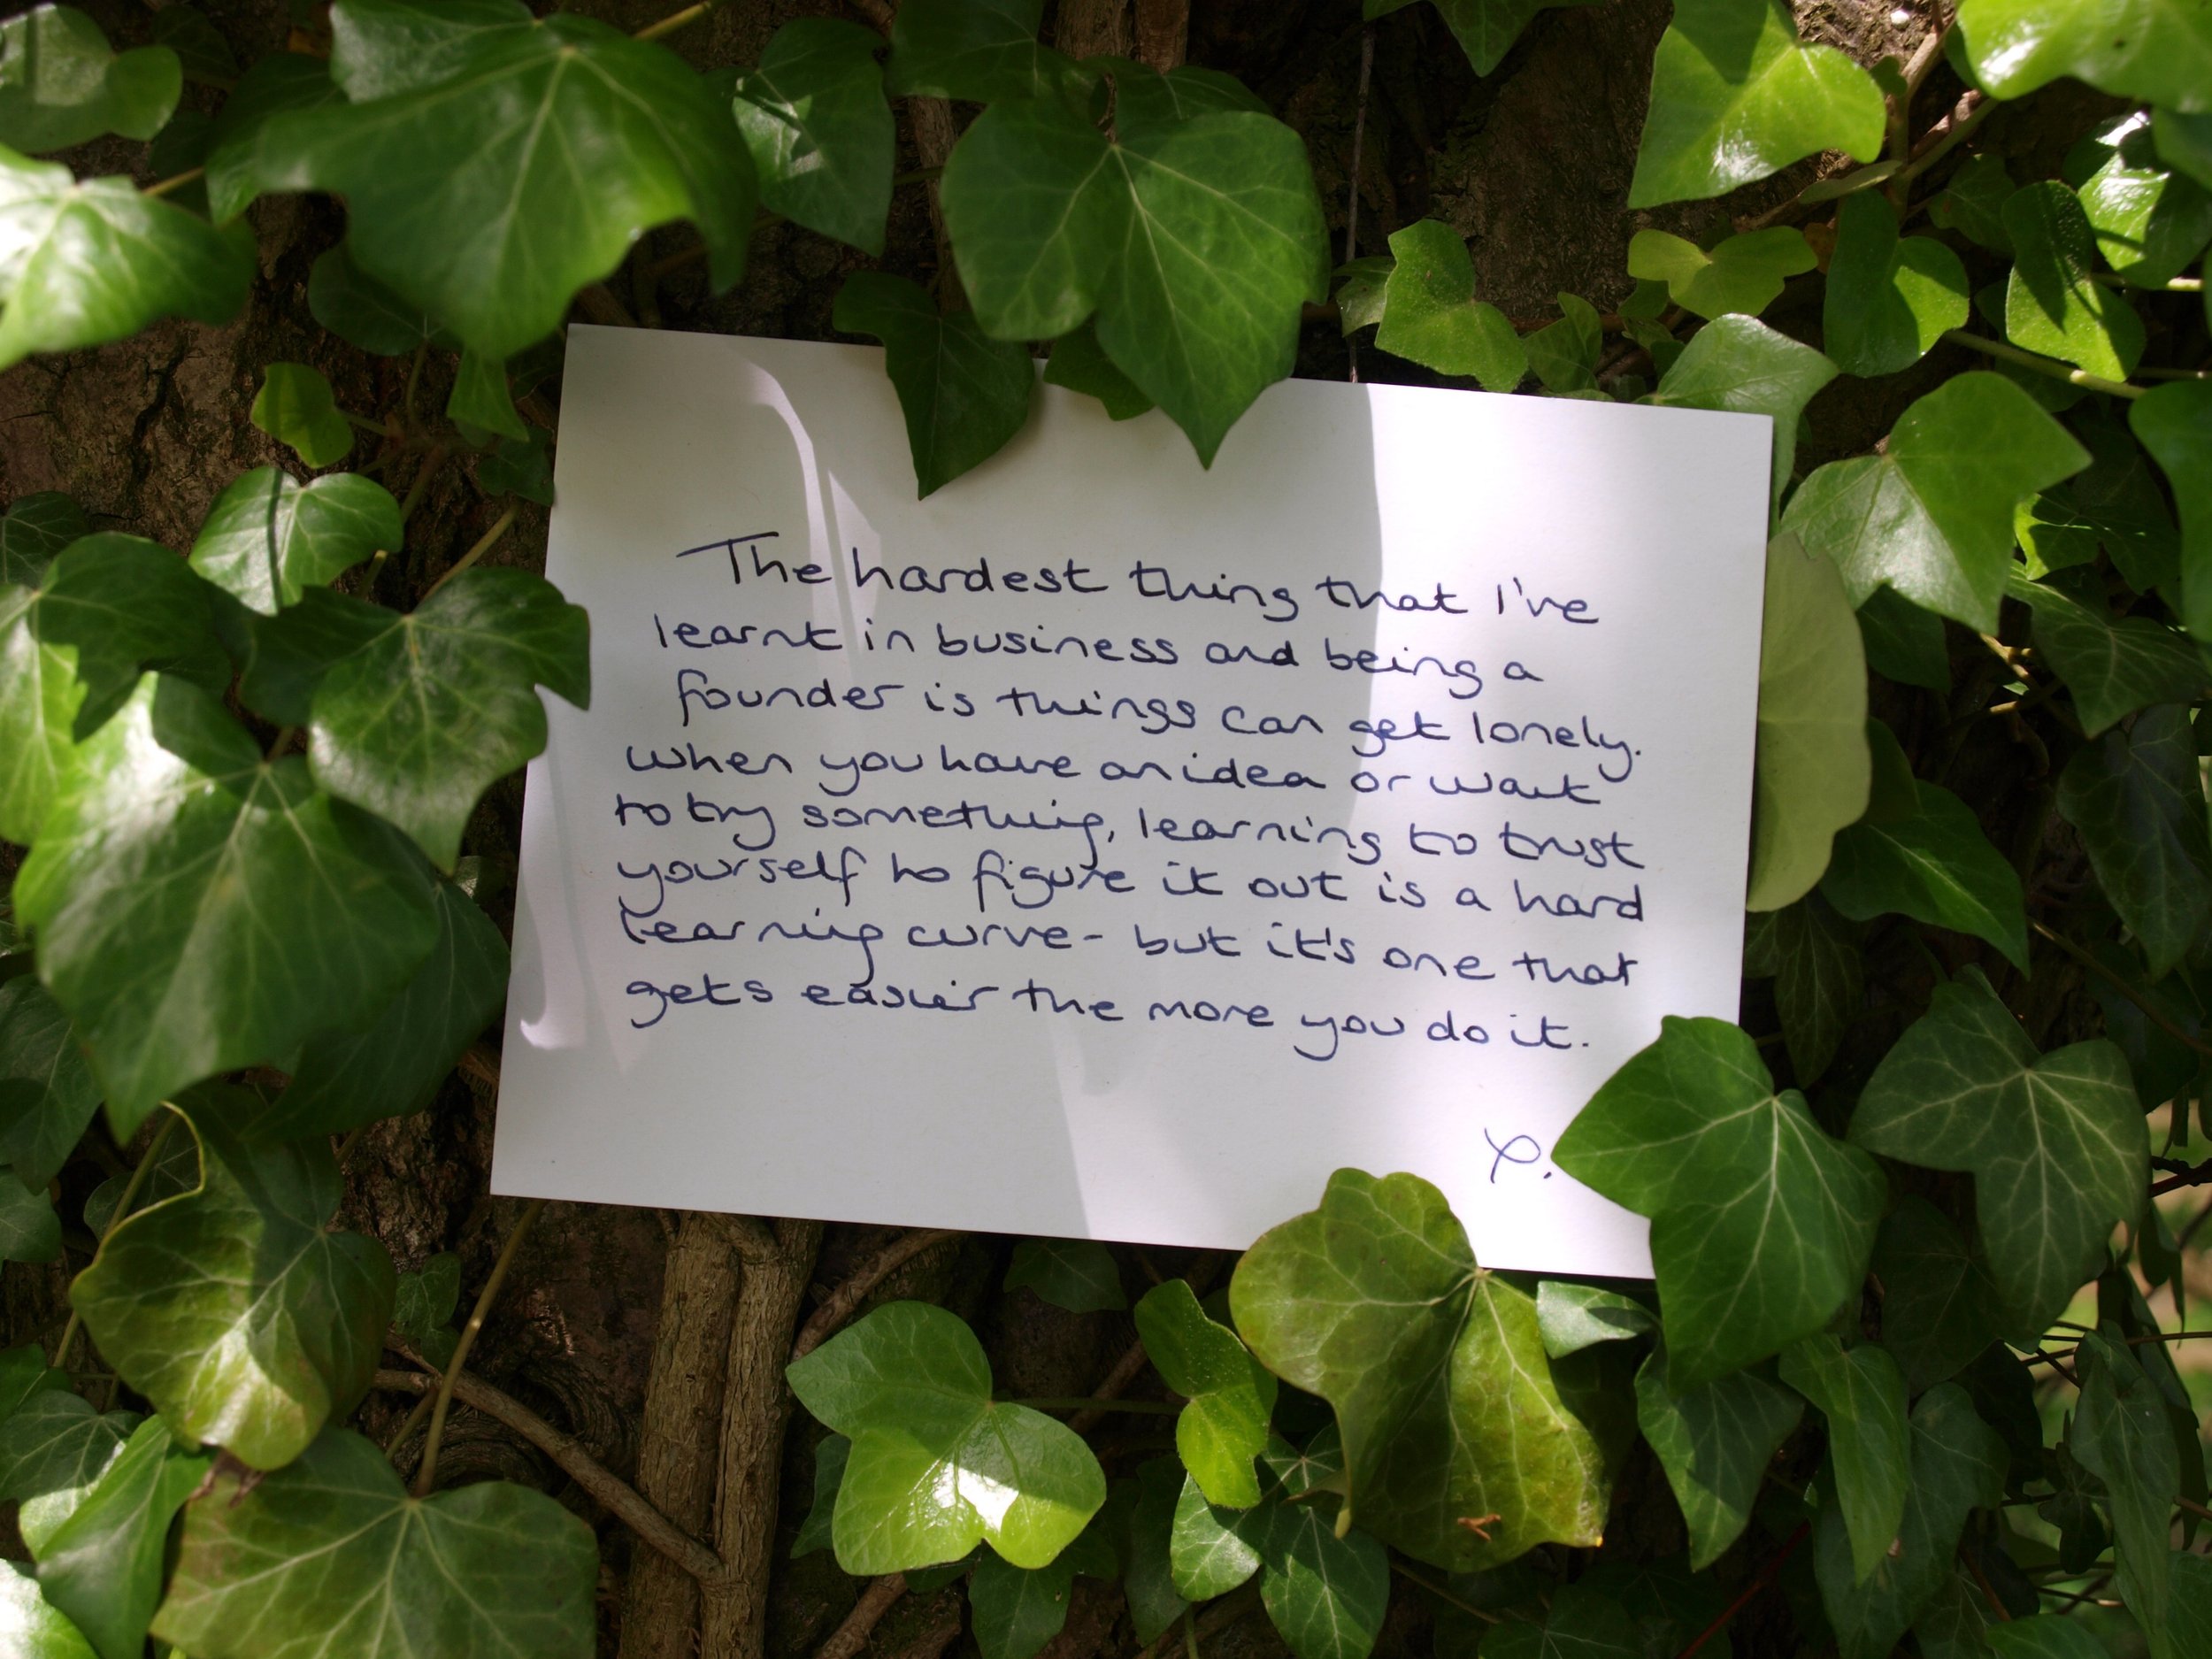 The hardest thing that I've
learnt in business and being a
founder is things can get lonely.
When you have an idea or want
to try something, learning to trust
yourself to figure it out is a hard
learning curve - but it's one that
gets easier the more you do it.